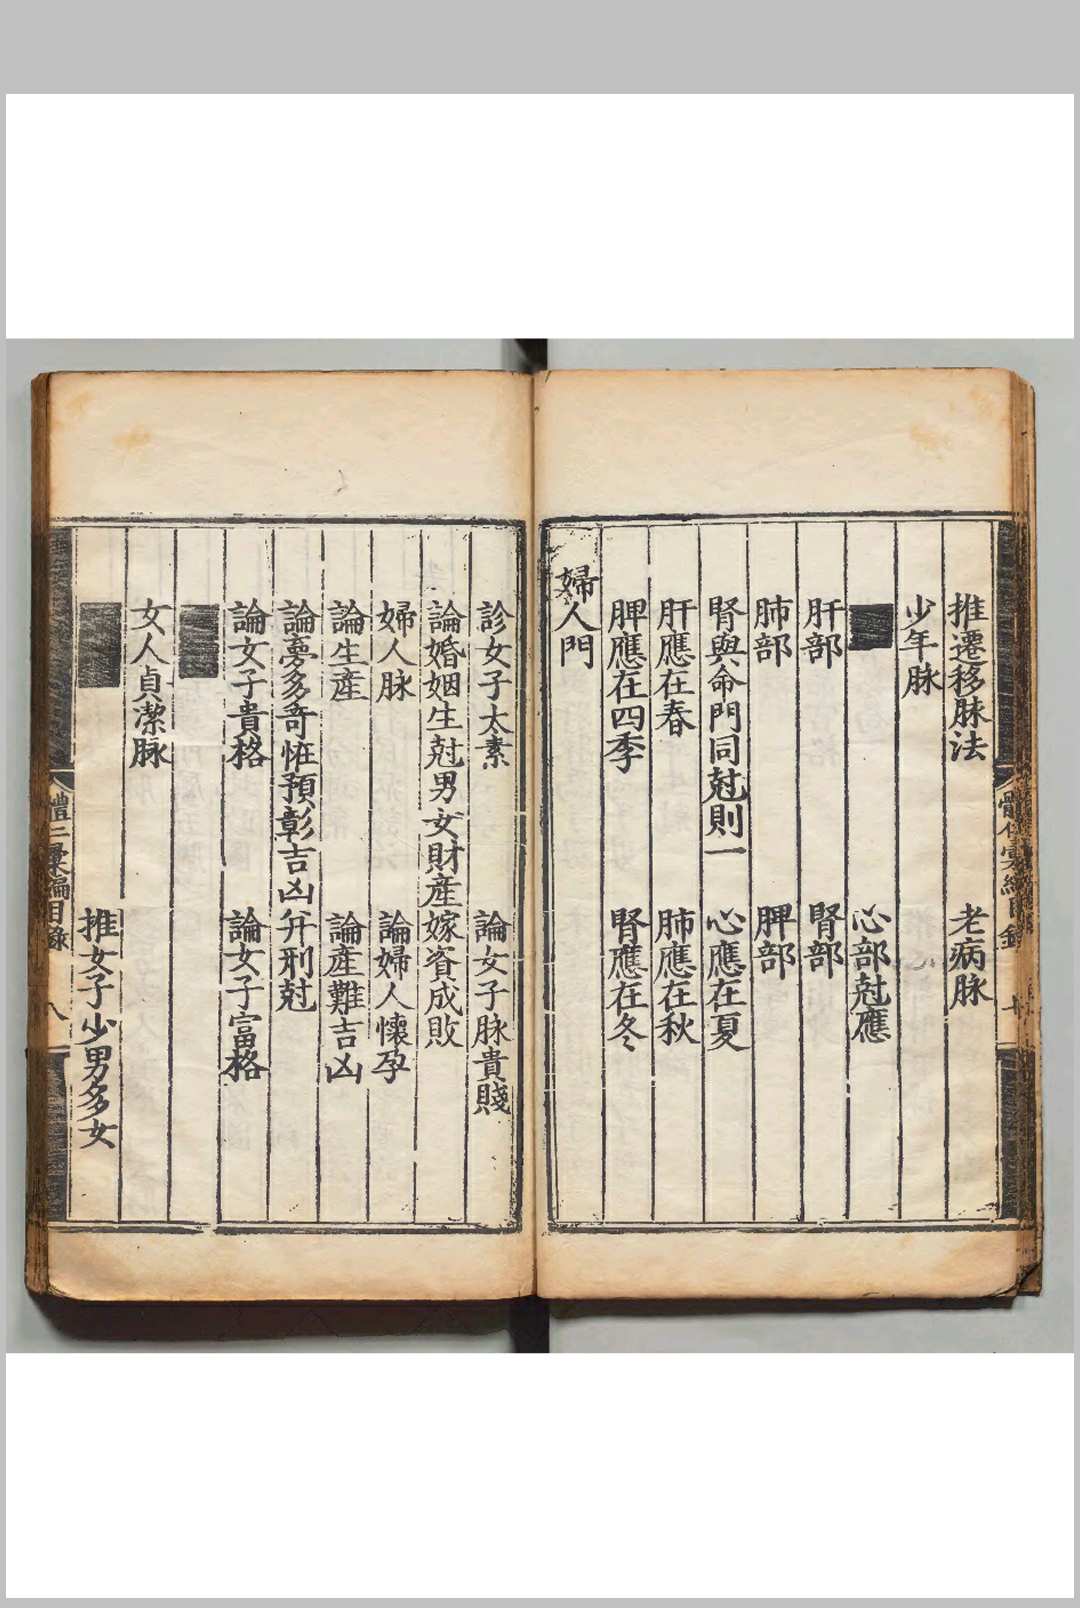 推遷移脉法　老病脉
少年脉
心部尅應
肝部　腎部
肺部　脾部
腎與命門同尅則一　心應在夏
肝應在春　肺應在秋
脾應在四季　腎應在冬
婦人門
診女子太素　論女子脉貴賤
論婚姻生尅男女財產嫁資成敗
婦人脉　論婦人懷孕
論生產　論產難吉凶
論夢多奇恠預彰吉凶幷刑尅
論女子貴格　論女子富格
女人貞潔脉
推女子少男多女
彙編目錄　八